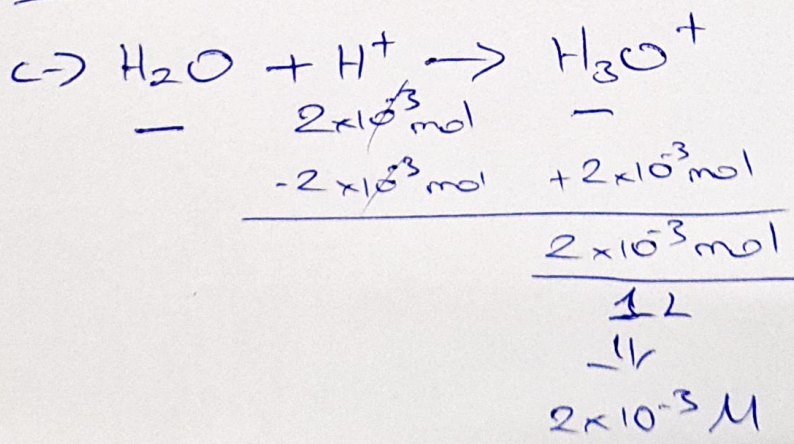 c-) H₂O + H⁺ → H₃O⁺
— 2×10⁻³mol —
-2×10⁻³mol +2×10⁻³mol
2×10⁻³mol
1L
2×10⁻³ M